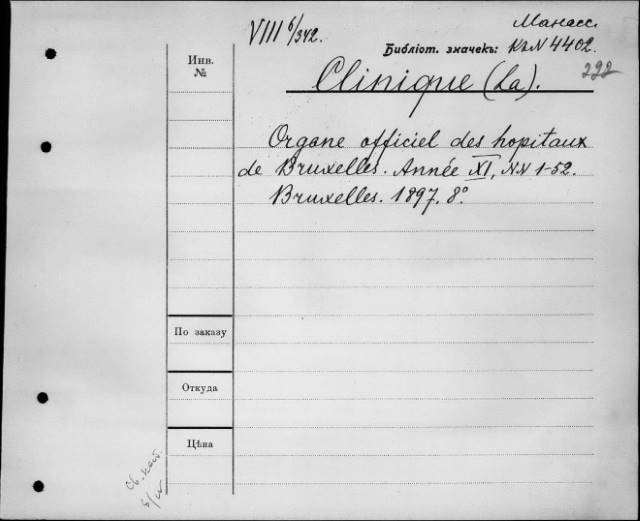 VIII 6/342.
Манасс.
Библіот. значекъ: КъN 4402.
292
Инв. №
Clinique (La).
Organe officiel des hopitaux
de Bruxelles. Année XI, NN 1-52.
Bruxelles. 1897. 8°.
По заказу
Откуда
Цѣна